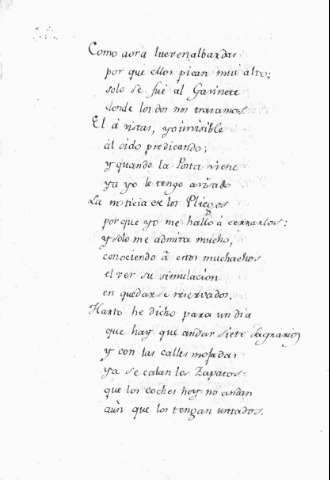 Como aora lueren albardas
por que ellos pican mui alto;
solo se fué al Gavinete
donde los dos nos tratamos.
El á vistas, yo invisible
al oido predicando;
y quando la Posta viene
ya yo le tengo avisado
La noticia de los Pliegos
porque yo me halló á cerrarlos:
y solo me admira mucho,
conociendo á estos muchachos
el ver su simulacion
en quedarse reservados.
Harto he dicho para un dia
que hay que andar siete sagrarios
y con las calles mojadas
ya se calan los Zapatos:
que los coches hoy no andan
aùn que los tengan untados.